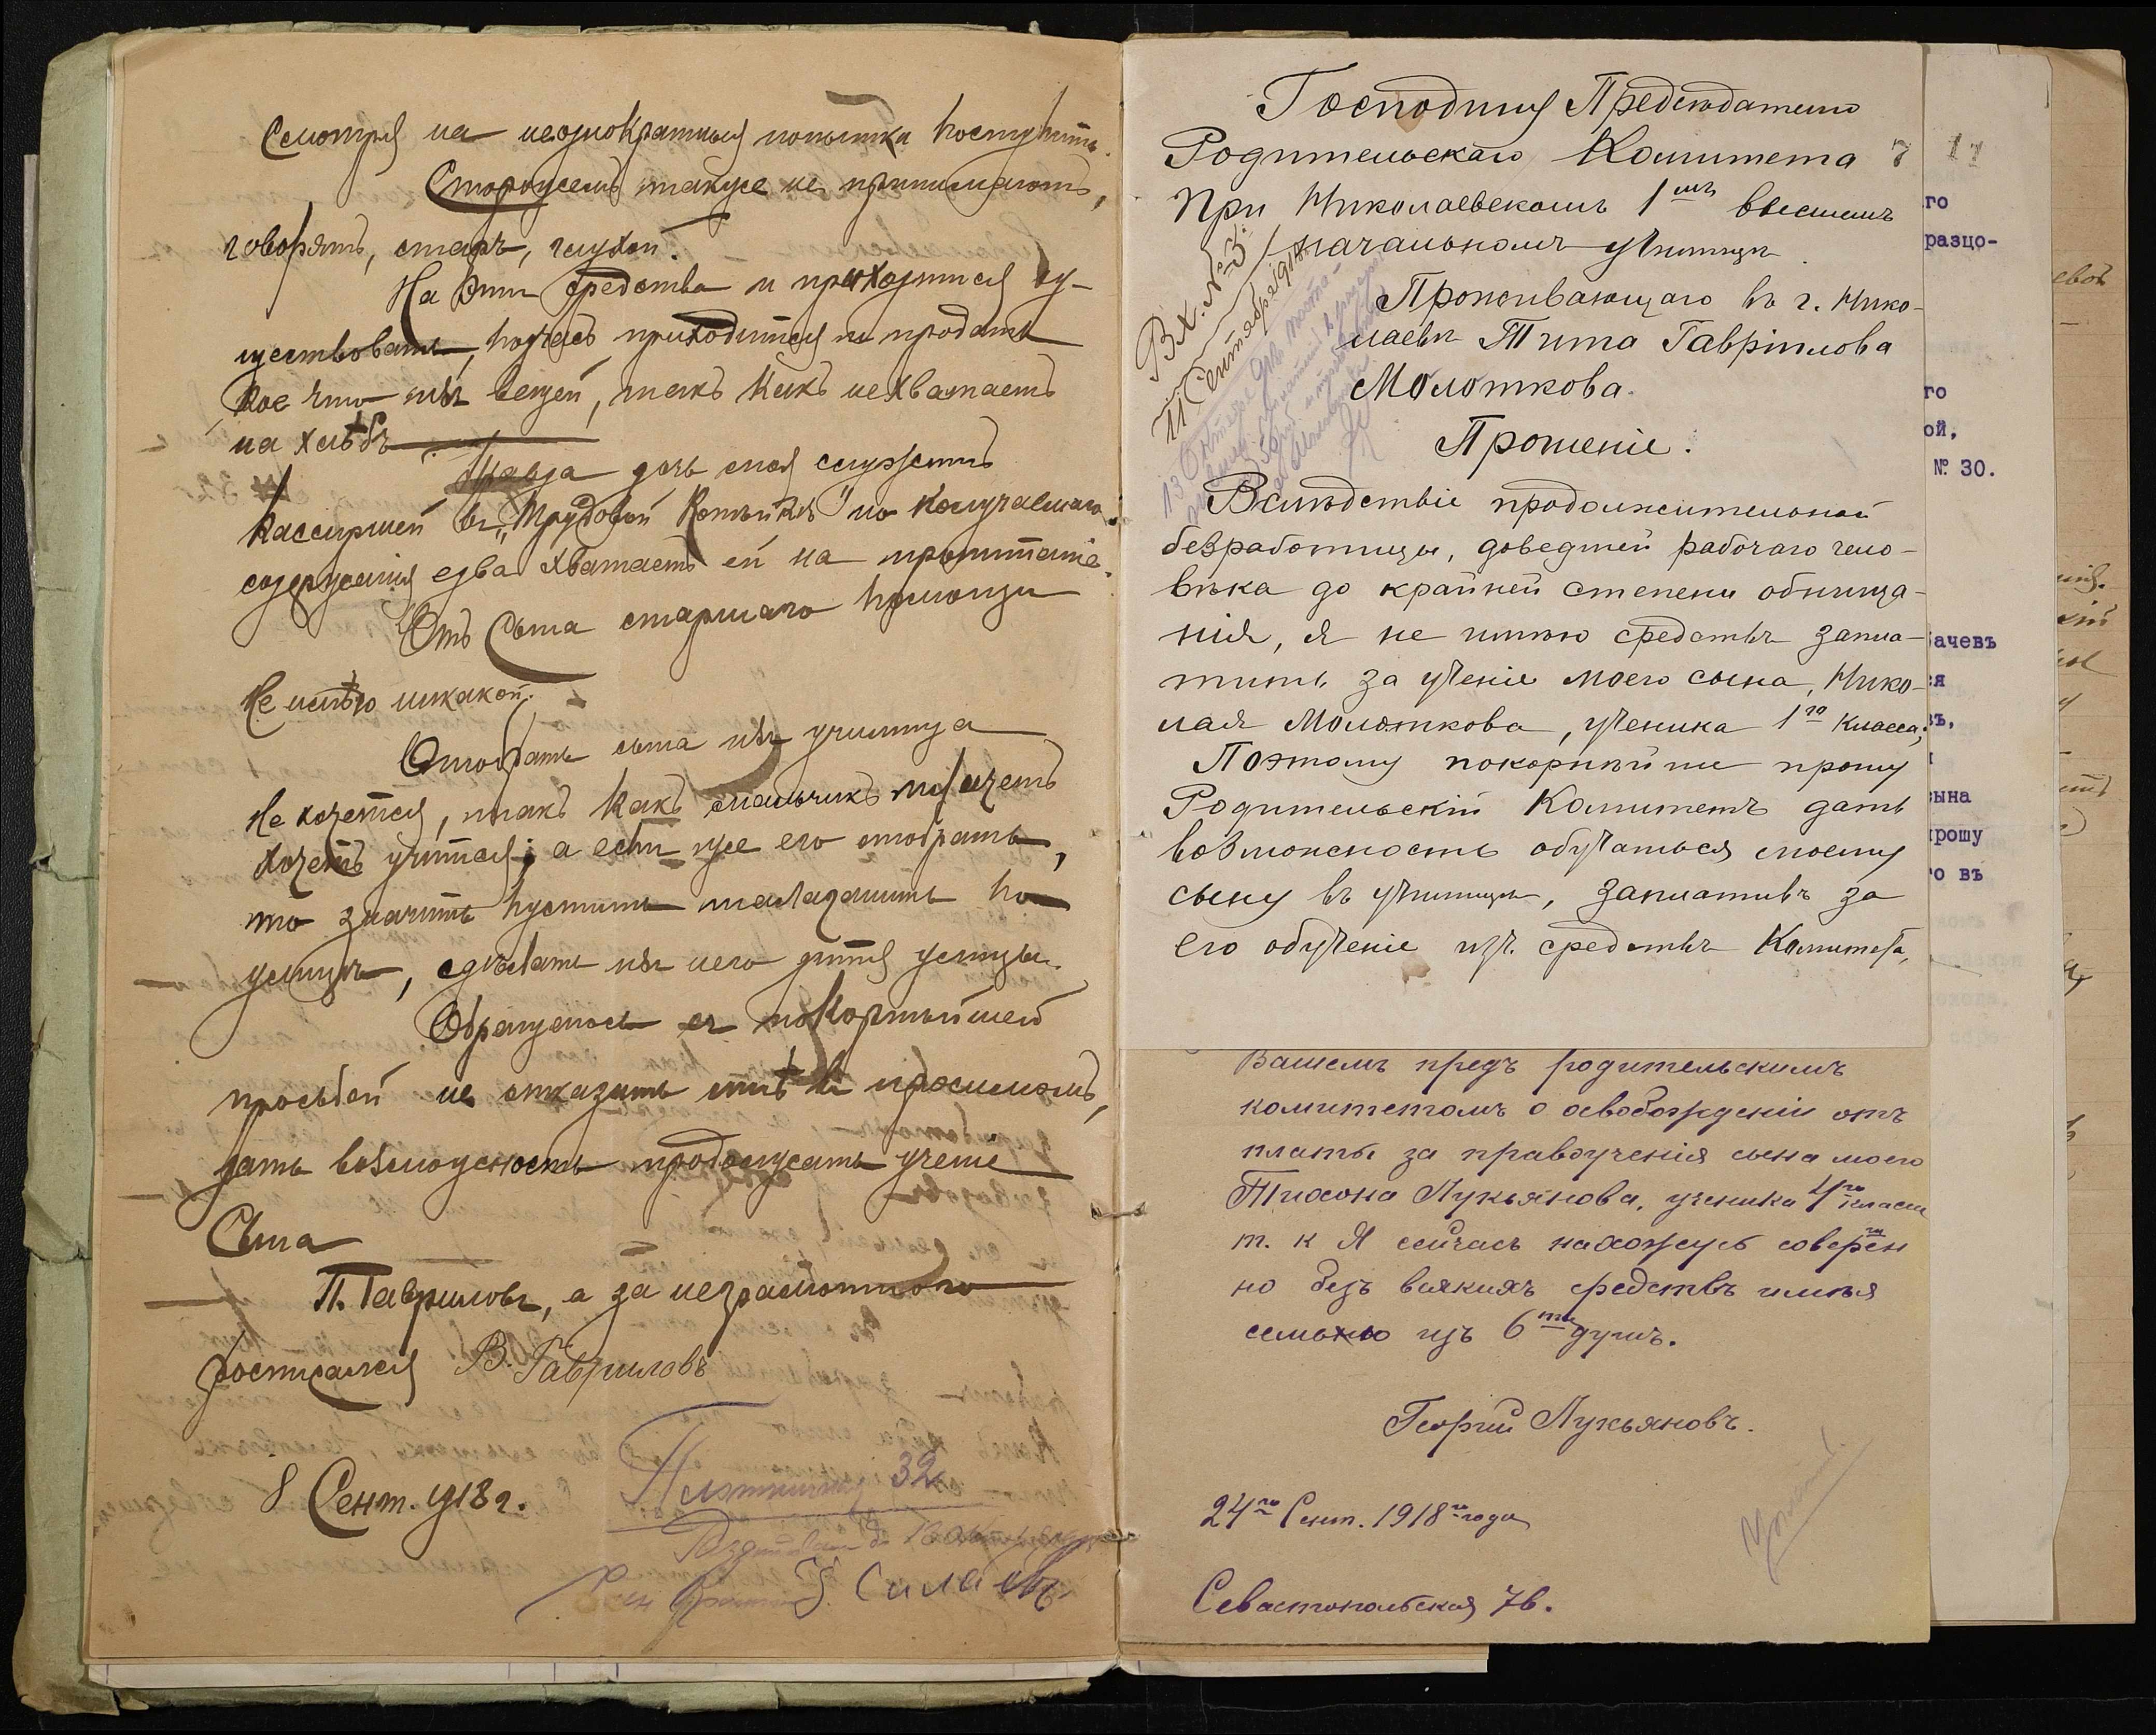 Смотря на неоднократныя попытки поступить.
Сторожемъ также не принимаютъ,
говорятъ, старъ, глухой.
На эти средства и приходится су-
ществовать, подчасъ приходится и продать
кое что изъ вещей, такъ какъ не хватаетъ
на хлѣбъ
Правда дочь моя служитъ
кассиршей въ „Трудовой Копѣйкѣ" но получаемаго
содержанія едва хватаетъ ей на пропитаніе.
Отъ Сына старшаго помощи
Не имѣю никакой.
Отобрать сына изъ училища
Не хочется, такъ какъ мальчикъ
хочетъ учится; а если же его отобрать,
то значитъ пустить по
улицѣ, сдѣлать изъ него дитя улицы.
Обращаюсь съ покорнѣйшей
просьбой не отказать мнѣ въ просимомъ,
дать возможность продолжать ученіе
Сына
П. Гавриловъ, а за неграмотного
росписался В. Гавриловъ
8 Сент. 1918 г.
32
Силаевъ
Господину Предсѣдателю
Родительскаго Комитета
7 17
При Николаевскомъ 1мъ высшемъ
начальномъ училищѣ
Вх. № 3.
11 Сентября 1918
Проживающаго въ г. Нико-
лаевѣ Тита Гавріилова
Молоткова.
Прошеніе.
Вслѣдствіе продолжительной
безработицы, доведшей рабочаго чело-
вѣка до крайней степени обнища-
нія, я не имѣю средствъ запла-
тить за ученіе моего сына, Нико-
лая Молоткова, ученика 1го класса;
Поэтому покорнѣйше прошу
Родительскій Комитетъ дать
возможность обучаться моему
сыну въ училищѣ, заплативъ за
его обученіе изъ средствъ Комитета,
Вашемъ предъ родительскимъ
комитетомъ о освобожденіи отъ
платы за правоученія сына моего
Тихона Лукьянова, ученика 1го класса
т. к Я сейчасъ нахожусь совершен
но безъ всякихъ средствъ имѣя
семью изъ 6ти душъ.
Георгій Лукьяновъ.
24го Сент. 1918го года
Севастопольская 76.
го
разцо-
го
ой,
№ 30.
ачевъ
ся
ъ,
сына
прошу
о въ